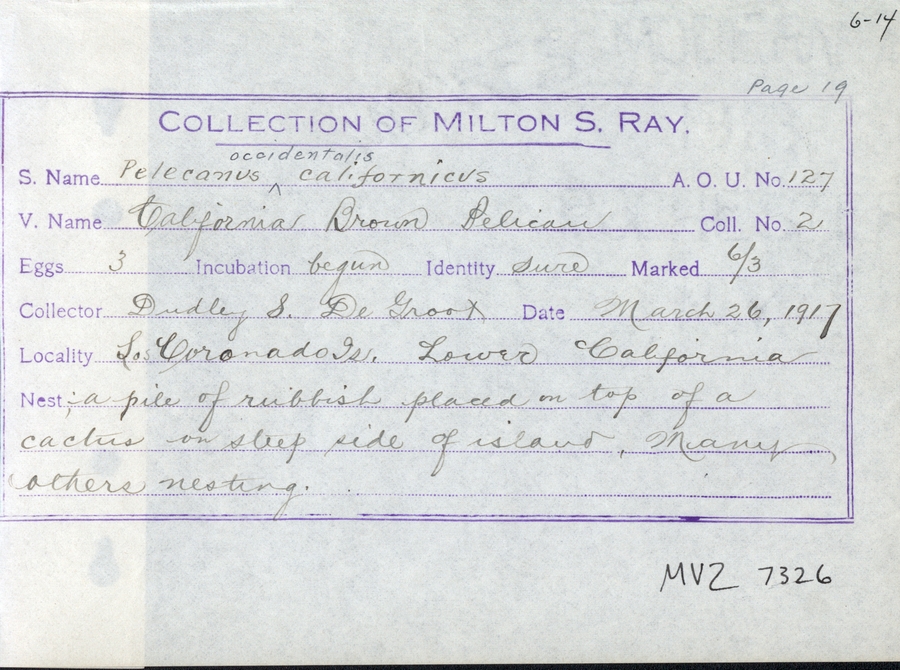 6-14
Page 19
COLLECTION OF MILTON S. RAY.
occidentalis
S. Name Pelecanus ^ californicus A. O. U. No. 127
V. Name California Brown Pelican Coll. No. 2
Eggs 3 Incubation begun Identity sure Marked 6/3
Collector Dudley S. De Groot Date March 26, 1917
Locality Los Coronado Is. Lower California
Nest; a pile of rubbish placed on top of a
cactus on steep side of island, Many
others nesting.
MVZ 7326